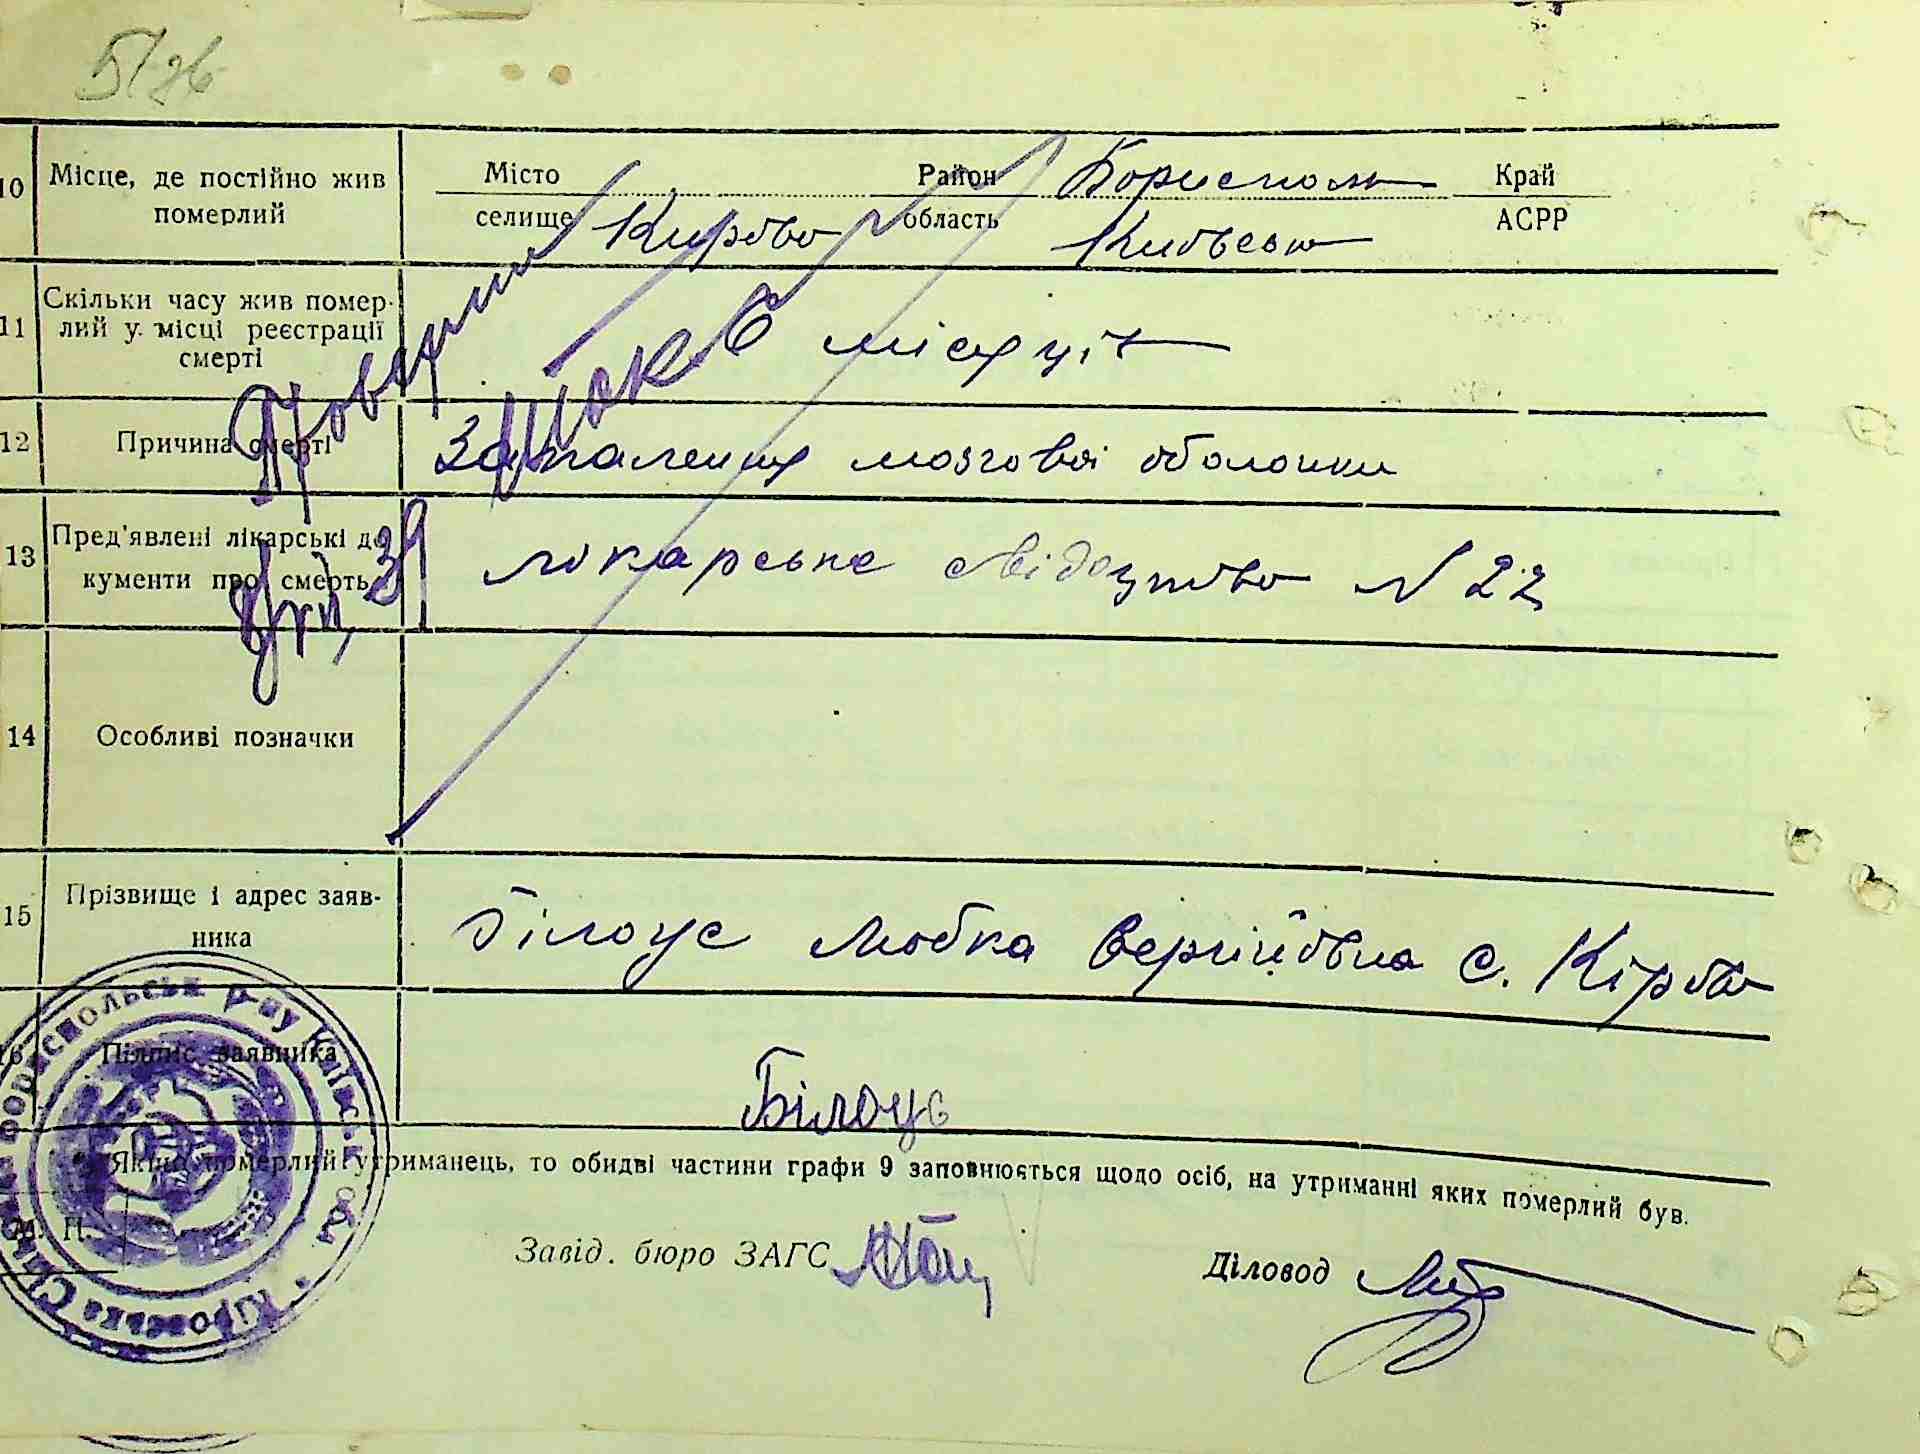 5/26
10 Місце, де постійно жив померлий
Місто Район Бориспол Край
селище Кирово область Киівсько АСРР
11 Скільки часу жив помер-
лий у місці реєстрації
смерті
6 місяців
12 Причина смерті Запалення мозгової оболонки
13 Пред'явлені лікарські до-
кументи про смерть
лікарське свідоцтво N 22
14 Особливі позначки
15 Прізвище і адрес заяв-
ника
Білоус Любка Сергіївна с. Кірово
16 Підпис заявника
Білоус
Якщо померлий утриманець, то обидві частини графи 9 заповнюється щодо осіб, на утриманні яких померлий був.
М. П.
Завід. бюро ЗАГС Діловод
Бориспольськ р-ну Київськ. обл. Кіровська